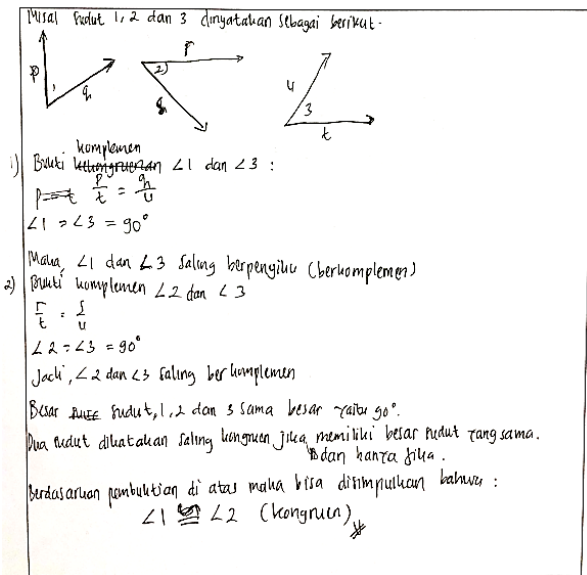 Misal sudut 1, 2 dan 3 dinyatakan sebagai berikut.
P 1 q
r 2) s
u 3 t
1) Bukti komplemen ∠1 dan ∠3 :
p/t = q/u
∠1 = ∠3 = 90°
Maka, ∠1 dan ∠3 saling berpenyiku (berkomplemen)
2) Bukti komplemen ∠2 dan ∠3
r/t = s/u
∠2 = ∠3 = 90°
Jadi, ∠2 dan ∠3 saling berkomplemen
Besar sudut, 1, 2 dan 3 sama besar yaitu 90°.
Dua sudut dikatakan saling kongruen jika memiliki besar sudut yang sama.
dan hanya jika.
Berdasarkan pembuktian di atas maka bisa disimpulkan bahwa :
∠1 ≅ ∠2 (kongruen)